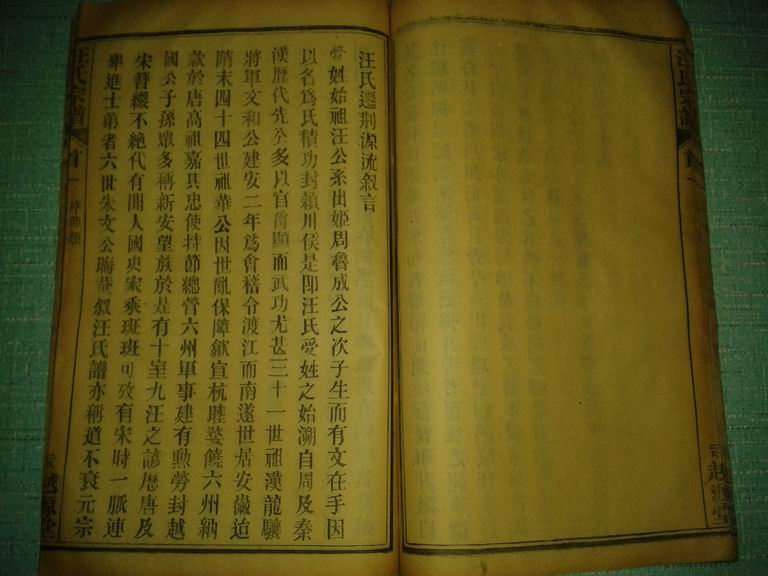 汪氏宗譜
汪氏遷荆源流叙言
受姓始祖汪公系出姬周魯成公之次子生而有文在手因
以名爲氏積功封潁川侯是即汪氏受姓之始溯自周及秦
漢歷代先公多以官爵顯而武功尤甚三十一世祖漢龍驤
將軍文和公建安二年爲會稽令渡江而南遂世居安徽迨
隋末四十四世祖華公因世亂保障歙宣杭睦婺饒六州納
欵於唐高祖嘉其忠使持節總管六州軍事建有勲勞封越
國公子孫眾多稱新安望族於是有十室九汪之諺歷唐及
宋簪纓不絶代有聞人國史家乘班班可攷有宋時一脈連
舉進士弟者六世朱文公晦菴叙汪氏譜亦稱道不衰元宗
汪氏宗譜
首
一
越源堂